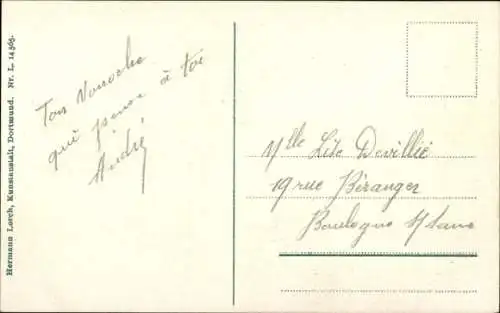 Hermann Lorch, Kunstanstalt, Dortmund. Nr. L. 14365.
Ton
qui pense à toi
André
Mlle Lite Devillié
19 rue Béranger
Boulogne s/ Seine